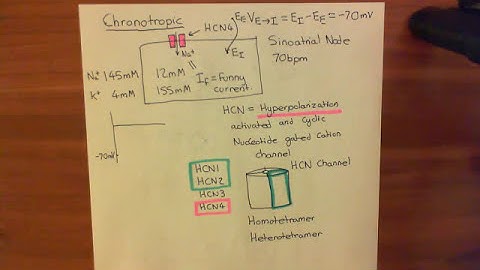 Chronotropic
HCN4
E_E V_E→I = E_I - E_E = -70mV
Na⁺
E_I
Sinoatrial Node
70bpm
Na⁺ 145mM
K⁺ 4mM
12mM
155mM
I_f = Funny
current.
HCN = Hyperpolarization
activated and cyclic
Nucleotide gated cation
channel
-70mV
HCN1
HCN2
HCN3
HCN4
HCN Channel
Homotetramer
Heterotetramer